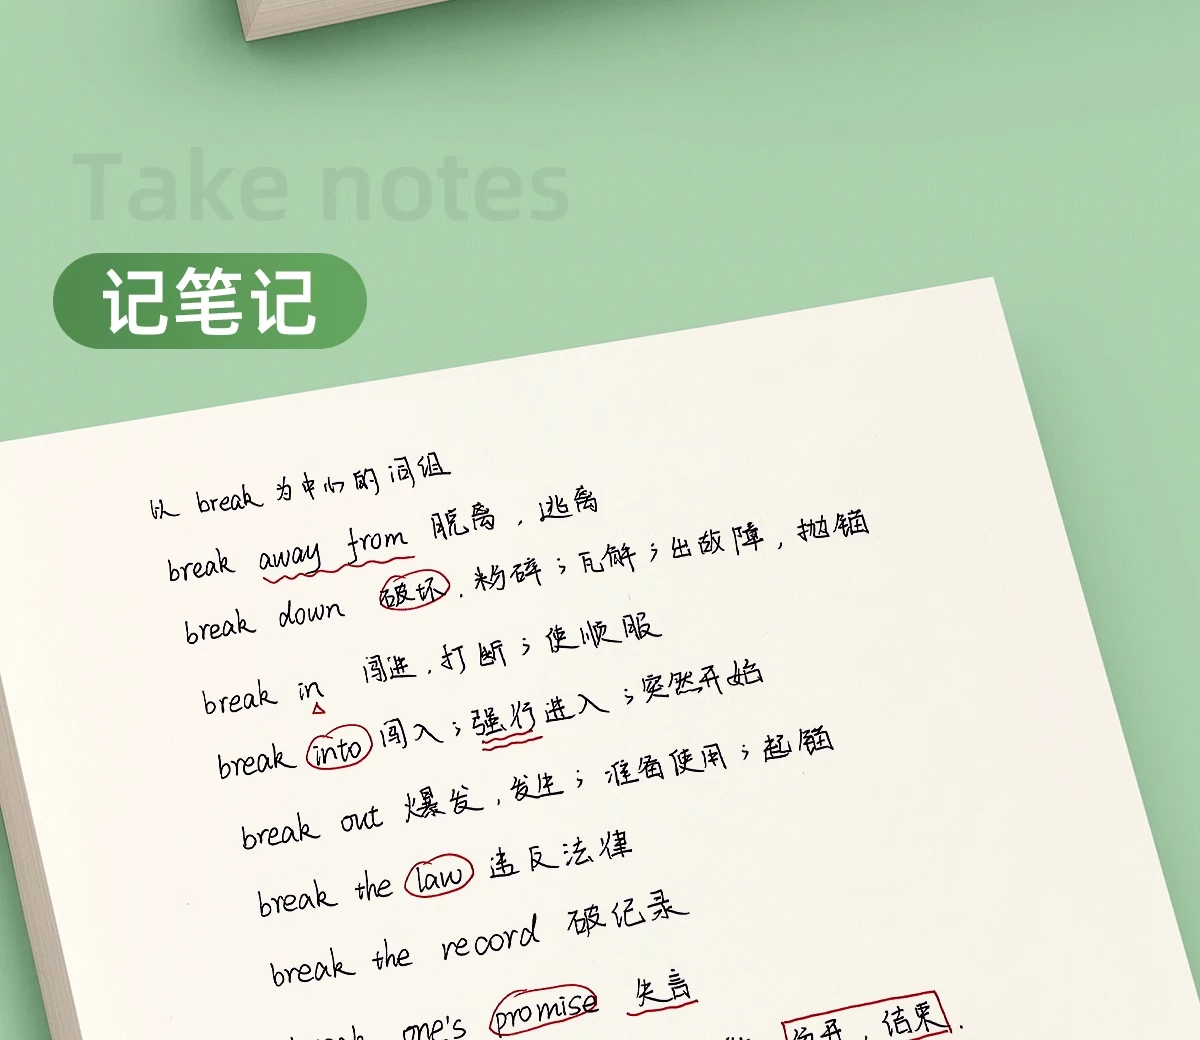 Take notes
记笔记
以 break 为中心的词组
break away from 脱离，逃离
break down 破坏，粉碎；瓦解；出故障，抛锚
break in 闯进，打断；使顺服
break into 闯入；强行进入；突然开始
break out 爆发，发生；准备使用；起锚
break the law 违反法律
break the record 破纪录
break one's promise 失言
结束.